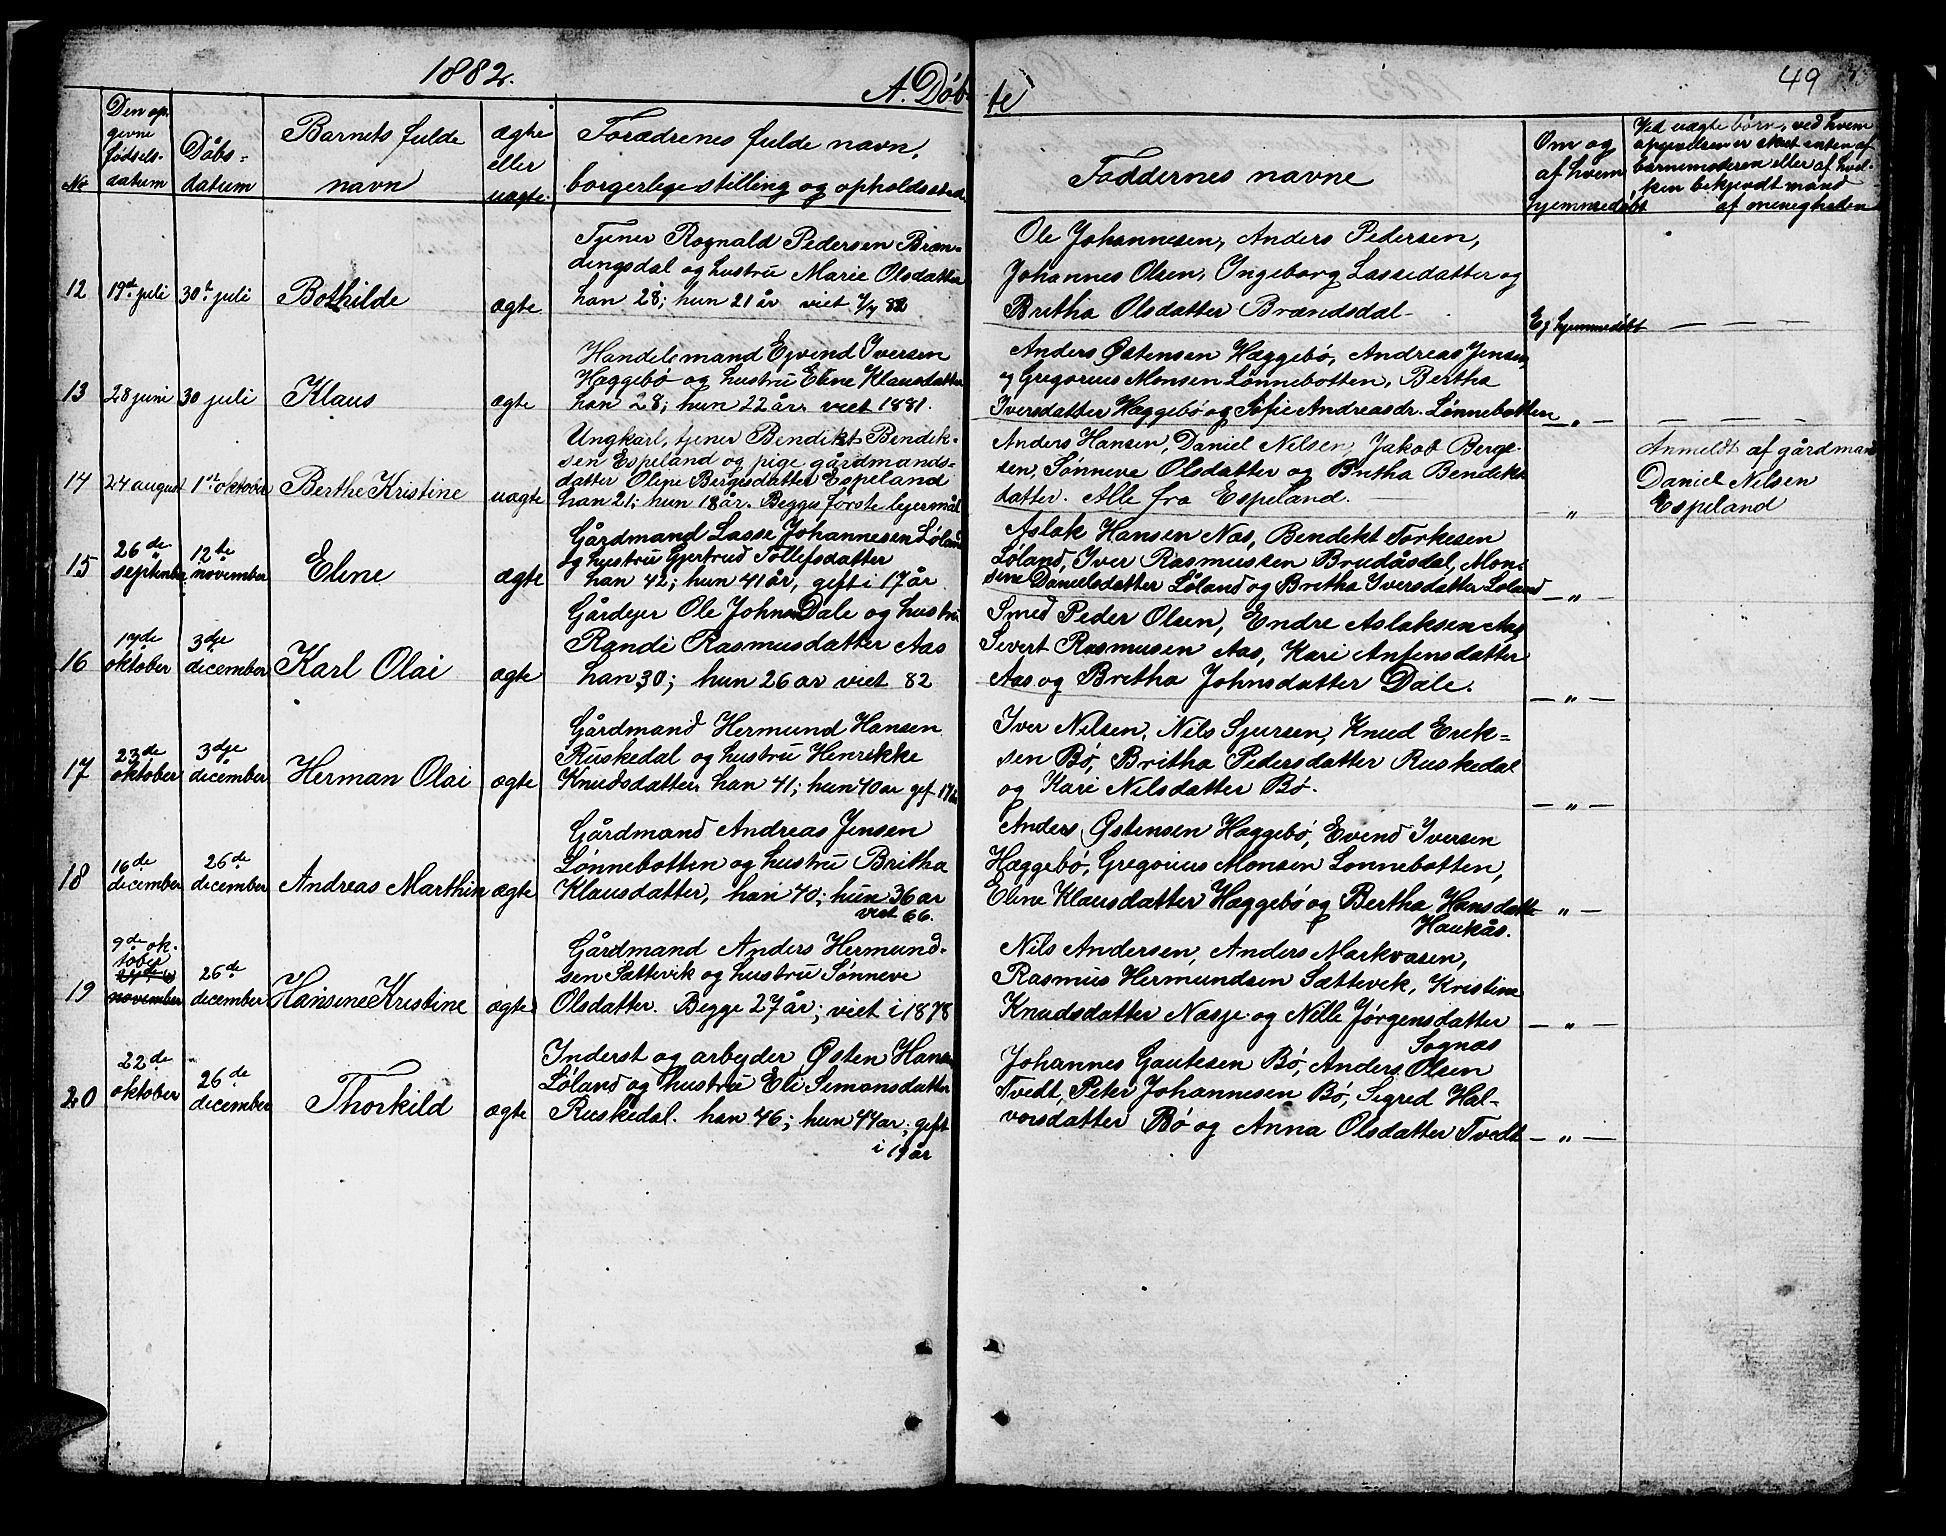 1882.
A. Døbte
49
No
Den op-
givne
fødsels-
datum
Døbs-
datum
Barnets fulde
navn
ægte
eller
uægte.
Forældrenes fulde navn,
borgerlige stilling og opholdssted
Faddernes navne
Om og
af hvem
hjemmedøbt
Ved uægte børn, ved hvem
opgivelsen er skeet enten af
barnemoderen eller af hvil-
ken bekjendt mand
af menigheden
12 19de juli 30te juli Bothilde ægte
Tjener Rognald Pedersen Bræn-
dingsdal og hustru Marie Olsdatter
han 28; hun 21 år viet 82
Ole Johannesen, Anders Pedersen,
Johannes Olsen, Ingeborg Lassedatter og
Britha Olsdatter Brændsdal
Ej hjemmedøbt
13 28 juni 30 juli Klaus ægte
Handelsmand Ejvind Iversen
Hæggebø og hustru Eline Klausdatter
han 28; hun 22 år. viet 1881.
Anders Østensen Hæggebø, Andreas Jensen
og Gregorius Monsen Lønnebotten, Bertha
Iversdatter Hæggebø og Sofie Andreasdr. Lønnebotten
— „ —
14 24 august 1ste oktober Berthe Kristine uægte
Ungkarl, tjener Bendikt Bendik-
sen Espeland og pige gårdmands-
datter Oline Bergesdatter Espeland
han 21; hun 18 år. Begges første lejermål
Anders Hansen, Daniel Nilsen, Jakob Berge-
sen, Sønneve Olsdatter og Britha Bendikts
datter. Alle fra Espeland.
— „
Anmeldt af gårdmand
Daniel Nilsen
Espeland
15 26de september 12te november Eline ægte
Gårdmand Lasse Johannesen Løland
og hustru Gjertrud Tollefsdatter
han 42; hun 41 år, gift i 17 år
Aslak Hansen Nas, Bendikt Torkesen
Løland, Iver Rasmussen Brudåsdal, Mon-
sine Danielsdatter Løland og Britha Iversdatter Løland
— „ —
16 17de oktober 3dje december Karl Olai ægte
Gårdejer Ole Johnsen Dale og hustru
Randi Rasmusdatter Aas
han 30; hun 26 ar viet 82
Smed Peder Olsen, Endre Aslaksen Aas
Sivert Rasmusen Aas, Kari Antensdatter
Aas og Britha Johnsdatter Dale.
— „ —
17 23de oktober 3dje december Herman Olai ægte
Gårdmand Hermund Hansen
Ruskedal og hustru Henrikke
Knudsdatter. han 41; hun 40 ar gif
Iver Nilsen, Nils Sjursen, Knud Erik-
sen Bø, Britha Pedersdatter Ruskedal
og Kari Nilsdatter Bø.
— „ —
18 16de december 26de december Andreas Marthin ægte
Gårdmand Andreas Jensen
Lønnebotten og hustru Britha
Klausdatter, han 40; hun 36 ar
viet 66.
Anders Østensen Hæggebø, Evend Iversen
Hæggebø, Gregorius Monsen Lonnebotten,
Eline Klausdatter Hæggebø og Bertha Hansdatte
Haukås.
— „ —
19 9de ok-
tober november 26de december Hansine Kristine ægte
Gårdmand Anders Hermund-
sen Sættevik og hustru Sønneve
Olsdatter. Begge 27 år; viet i 1878
Nils Andersen, Anders Markvasen,
Rasmus Hermundsen Sættevik, Kristine
Knudsdatter Nasje og Nille Jørgensdatter
Sognæs
— „ —
20 22de oktober 26de december Thorkild ægte
Inderst og arbejder Østen Hansen
Løland og hustru Eli Simonsdatter
Ruskedal. han 46; hun 44 ar; gift
i 19 år
Johannes Gautesen Bø, Anders Olsen
Tvedt, Peter Johannesen Bø, Sigred Hal-
vorsdatter Bø og Anna Olsdatter Tvedt
— „ —